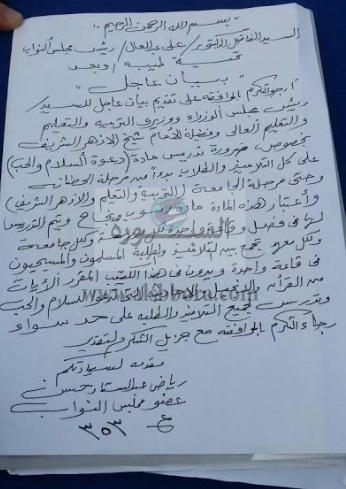 بسم الله الرحمن الرحيم
السيد الفاضل الدكتور / على عبد العال / رئيس مجلس النواب
تحية طيبة / وبعد
بيان عاجل
أرجو التكرم بالموافقة على تقديم بيان عاجل للسيد /
رئيس مجلس الوزراء ووزيرى التربية والتعليم
والتعليم العالى وفضيلة الإمام شيخ الأزهر الشريف
بخصوص ضرورة تدريس مادة (دعوة السلام والحب)
على كل التلاميذ والطلاب بدءاً من مرحلة الحضانة
وحتى مرحلة الجامعة (التربية والتعليم والأزهر الشريف)
وأعتبار هذه المادة مادة ونجاح ويتم التدريس
لها فى فصل وقاعة واحدة لكل وكل جامعة
وكل معهد يجمع بين التلاميذ والطلبة المسلمون والمسيحيون
فى قاعة واحدة ويدون فى هذا الكتاب المقرر الآيات
من القرآن والإنجيل السلام والحب
وتدرس لجميع التلاميذ والطلبة على حد سواء
رجاء التكرم بالموافقة مع جزيل الشكر والتقدير
مقدمه لسيادتكم
رياض عبد الستار حسن
عضو مجلس النواب
٣٥٣
www.elbalad.com